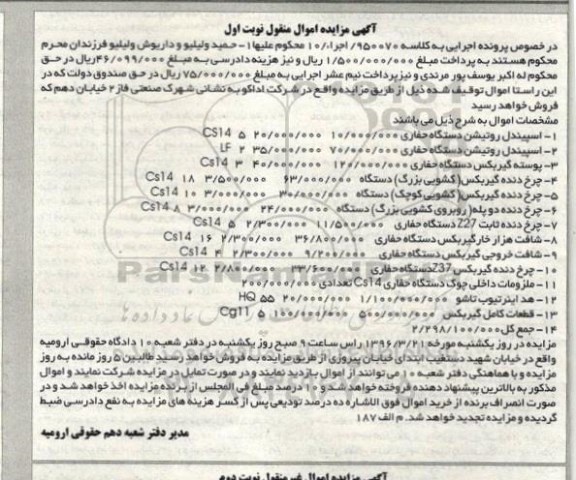 آگهی مزایده اموال منقول نوبت اول
در خصوص پرونده اجرایی به کلاسه ۹۵۰۰۷۰/اجرا/۱۰ محکوم علیها ۱- حمید ولیلیو و داریوش ولیلیو فرزندان محرم
محکوم هستند به پرداخت مبلغ ۱/۵۰۰/۰۰۰/۰۰۰ ریال و نیز هزینه دادرسی به مبلغ ۴۶/۰۹۹/۰۰۰ ریال در حق
محکوم له اکبر یوسف پور مرندی و نیز پرداخت نیم عشر اجرایی به مبلغ ۷۵/۰۰۰/۰۰۰ ریال در حق صندوق دولت که در
این راستا اموال توقیف شده ذیل از طریق مزایده واقع در شرکت اداکو به نشانی شهرک صنعتی فاز ۲ خیابان دهم که
فروش خواهد رسید
مشخصات اموال به شرح ذیل می باشند
۱- اسپیندل روتیشن دستگاه حفاری ۱۰/۰۰۰/۰۰۰ ۲۰/۰۰۰/۰۰۰ ۵ CS14
۲- اسپیندل روتیشن دستگاه حفاری ۷۰/۰۰۰/۰۰۰ ۳۵/۰۰۰/۰۰۰ ۲ LF
۳- پوسته گیربکس دستگاه حفاری ۱۲۰/۰۰۰/۰۰۰ ۴۰/۰۰۰/۰۰۰ ۳ Cs14
۴- چرخ دنده گیربکس (کشویی بزرگ) دستگاه ۶۳/۰۰۰/۰۰۰ ۳/۵۰۰/۰۰۰ ۱۸ Cs14
۵- چرخ دنده گیربکس (کشویی کوچک) دستگاه ۳۰/۰۰۰/۰۰۰ ۳/۰۰۰/۰۰۰ ۱۰ Cs14
۶- چرخ دنده دو پله (روبروی کشویی بزرگ) دستگاه ۲۴/۰۰۰/۰۰۰ ۳/۰۰۰/۰۰۰ ۸ Cs14
۷- چرخ دنده ثابت Z27 دستگاه حفاری ۱۱/۵۰۰/۰۰۰ ۲/۳۰۰/۰۰۰ ۵ Cs14
۸- شافت هزار خار گیربکس دستگاه حفاری ۳۶/۸۰۰/۰۰۰ ۲/۳۰۰/۰۰۰ ۱۶ Cs14
۹- شافت خروجی گیربکس دستگاه حفاری ۹/۲۰۰/۰۰۰ ۲/۳۰۰/۰۰۰ ۴ Cs14
۱۰- چرخ دنده گیربکس Z37 دستگاه حفاری ۳۳/۶۰۰/۰۰۰ ۲/۸۰۰/۰۰۰ ۱۲ Cs14
۱۱- ملزومات داخلی چوک دستگاه حفاری Cs14 تعدادی ۲۰۰/۰۰۰/۰۰۰
۱۲- هد اینرتیوب تاشو ۱/۱۰۰/۰۰۰/۰۰۰ ۲۰/۰۰۰/۰۰۰ ۵۵ HQ
۱۳- قطعات کامل گیربکس ۵۰۰/۰۰۰/۰۰۰ ۱۰۰/۰۰۰/۰۰۰ ۵ Cg11
۱۴- جمع کل ۲/۲۹۸/۱۰۰/۰۰۰
مزایده در روز یکشنبه مورخه ۱۳۹۶/۳/۲۱ راس ساعت ۹ صبح روز یکشنبه در دفتر شعبه ۱۰ دادگاه حقوقی ارومیه
واقع در خیابان شهید دستغیب ابتدای خیابان پیروزی از طریق مزایده به فروش خواهد رسید طالبین ۵ روز مانده به روز
مزایده و با هماهنگی دفتر شعبه ۱۰ می توانند از اموال بازدید نمایند و در صورت تمایل در مزایده شرکت نمایند و اموال
مذکور به بالاترین پیشنهاد دهنده فروخته خواهد شد و ۱۰ درصد مبلغ فی المجلس از برنده مزایده اخذ خواهد شد و در
صورت انصراف برنده از خرید اموال فوق الاشاره ده درصد تودیعی پس از کسر هزینه های مزایده به نفع دادرسی ضبط
گردیده و مزایده تجدید خواهد شد. م الف ۱۸۷
مدیر دفتر شعبه دهم حقوقی ارومیه
آگهی مزایده اموال غیر منقول نوبت دوم